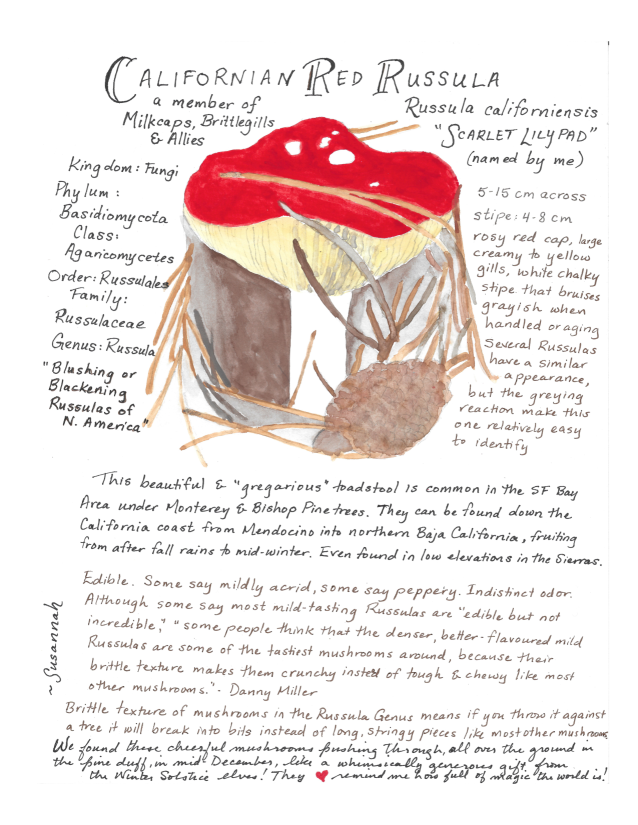 CALIFORNIAN RED RUSSULA
a member of
Milkcaps, Brittlegills
& Allies
Russula californiensis
"SCARLET LILYPAD"
(named by me)
Kingdom: Fungi
Phylum:
Basidiomycota
Class:
Agaricomycetes
Order: Russulales
Family:
Russulaceae
Genus: Russula
"Blushing or
Blackening
Russulas of
N. America"
5-15 cm across
stipe: 4-8 cm
rosy red cap, large
creamy to yellow
gills, white chalky
stipe that bruises
grayish when
handled or aging
Several Russulas
have a similar
appearance,
but the greying
reaction make this
one relatively easy
to identify
This beautiful & "gregarious" toadstool is common in the SF Bay
Area under Monterey & Bishop Pine trees. They can be found down the
California coast from Mendocino into northern Baja California, fruiting
from after fall rains to mid-winter. Even found in low elevations in the Sierras.
Edible. Some say mildly acrid, some say peppery. Indistinct odor.
Although some say most mild-tasting Russulas are "edible but not
incredible," "some people think that the denser, better-flavoured mild
Russulas are some of the tastiest mushrooms around, because their
brittle texture makes them crunchy insted of tough & chewy like most
other mushrooms." - Danny Miller
~ Susannah
Brittle texture of mushrooms in the Russula Genus means if you throw it against
a tree it will break into bits instead of long, stringy pieces like most other mushrooms
We found these cheerful mushrooms pushing through, all over the ground in
the pine duff, in mid December, like a whimsically generous gift from
the Winter Solstice elves! They ♥ remind me how full of magic the world is!